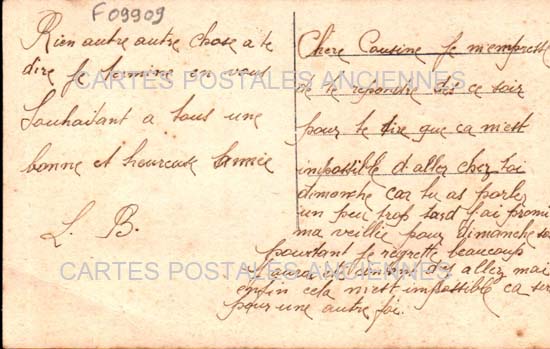 F09909
Chere Cousine Je m'empresse
de te repondre dès ce soir
pour te dire que ça m'est
impossible d'aller chez toi
dimanche car tu as parler
un peu trop tard j'ai promi
ma veillié pour dimanche
pourtant je regrette beaucoup
allez mai
enfin cela m'est impossible ça
pour une autre foi.
Rien autre autre chose a te
dire Je termine en vous
Souhaitant a tous une
bonne et heureuse année
L. B.
CARTES POSTALES ANCIENNES
CARTES POSTALES ANCIENNES